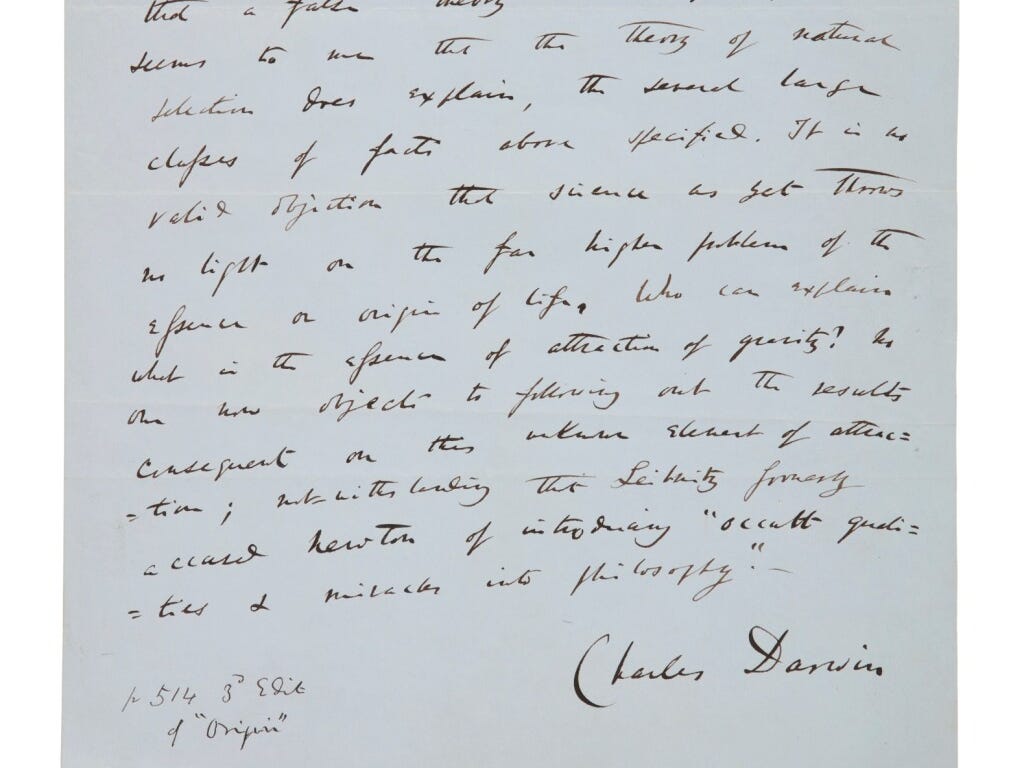 that a false theory
seems to me that the theory of natural
selection does explain, the several large
classes of facts above specified. It is no
valid objection that science as yet throws
no light on the far higher problem of the
essence or origin of life. Who can explain
what is the essence of attraction of gravity? No
one now objects to following out the results
consequent on this unknown element of attrac=
=tion; notwithstanding that Leibnitz formerly
accused Newton of introducing "occult quali=
=ties & miracles into philosophy".—
Charles Darwin
p 514 3d Edit
of "Origin"